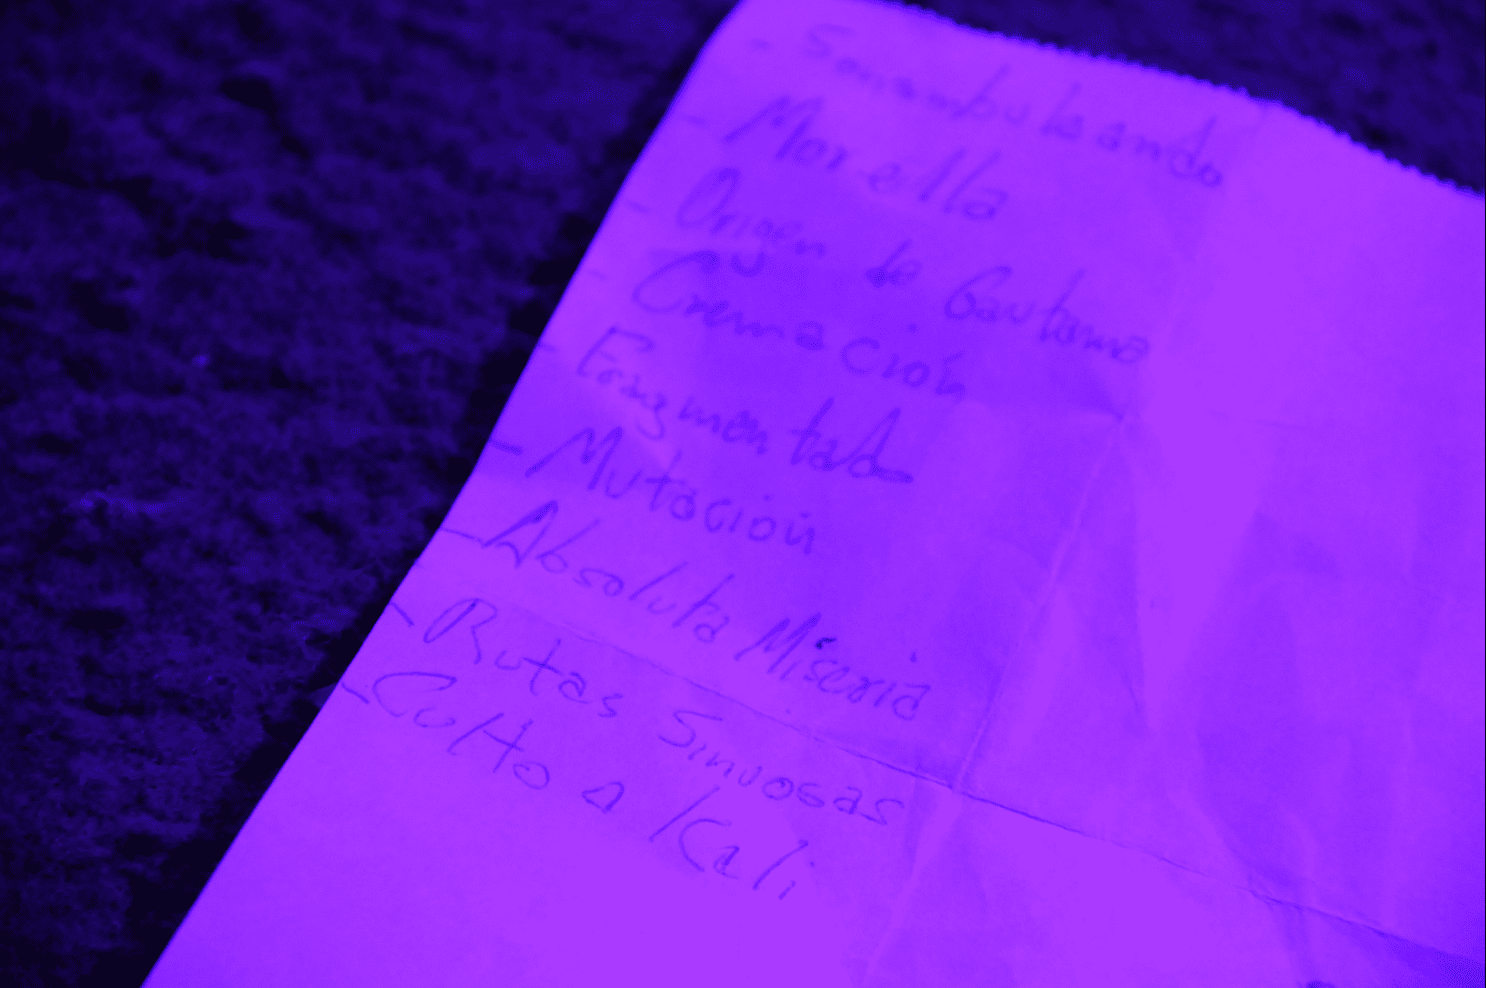 - Sonambuleando
- Morella
- Origen de Gautama
- Cremación
- Fragmentado
- Mutación
- Absoluta Miseria
- Rutas Sinuosas
- Culto a Kali